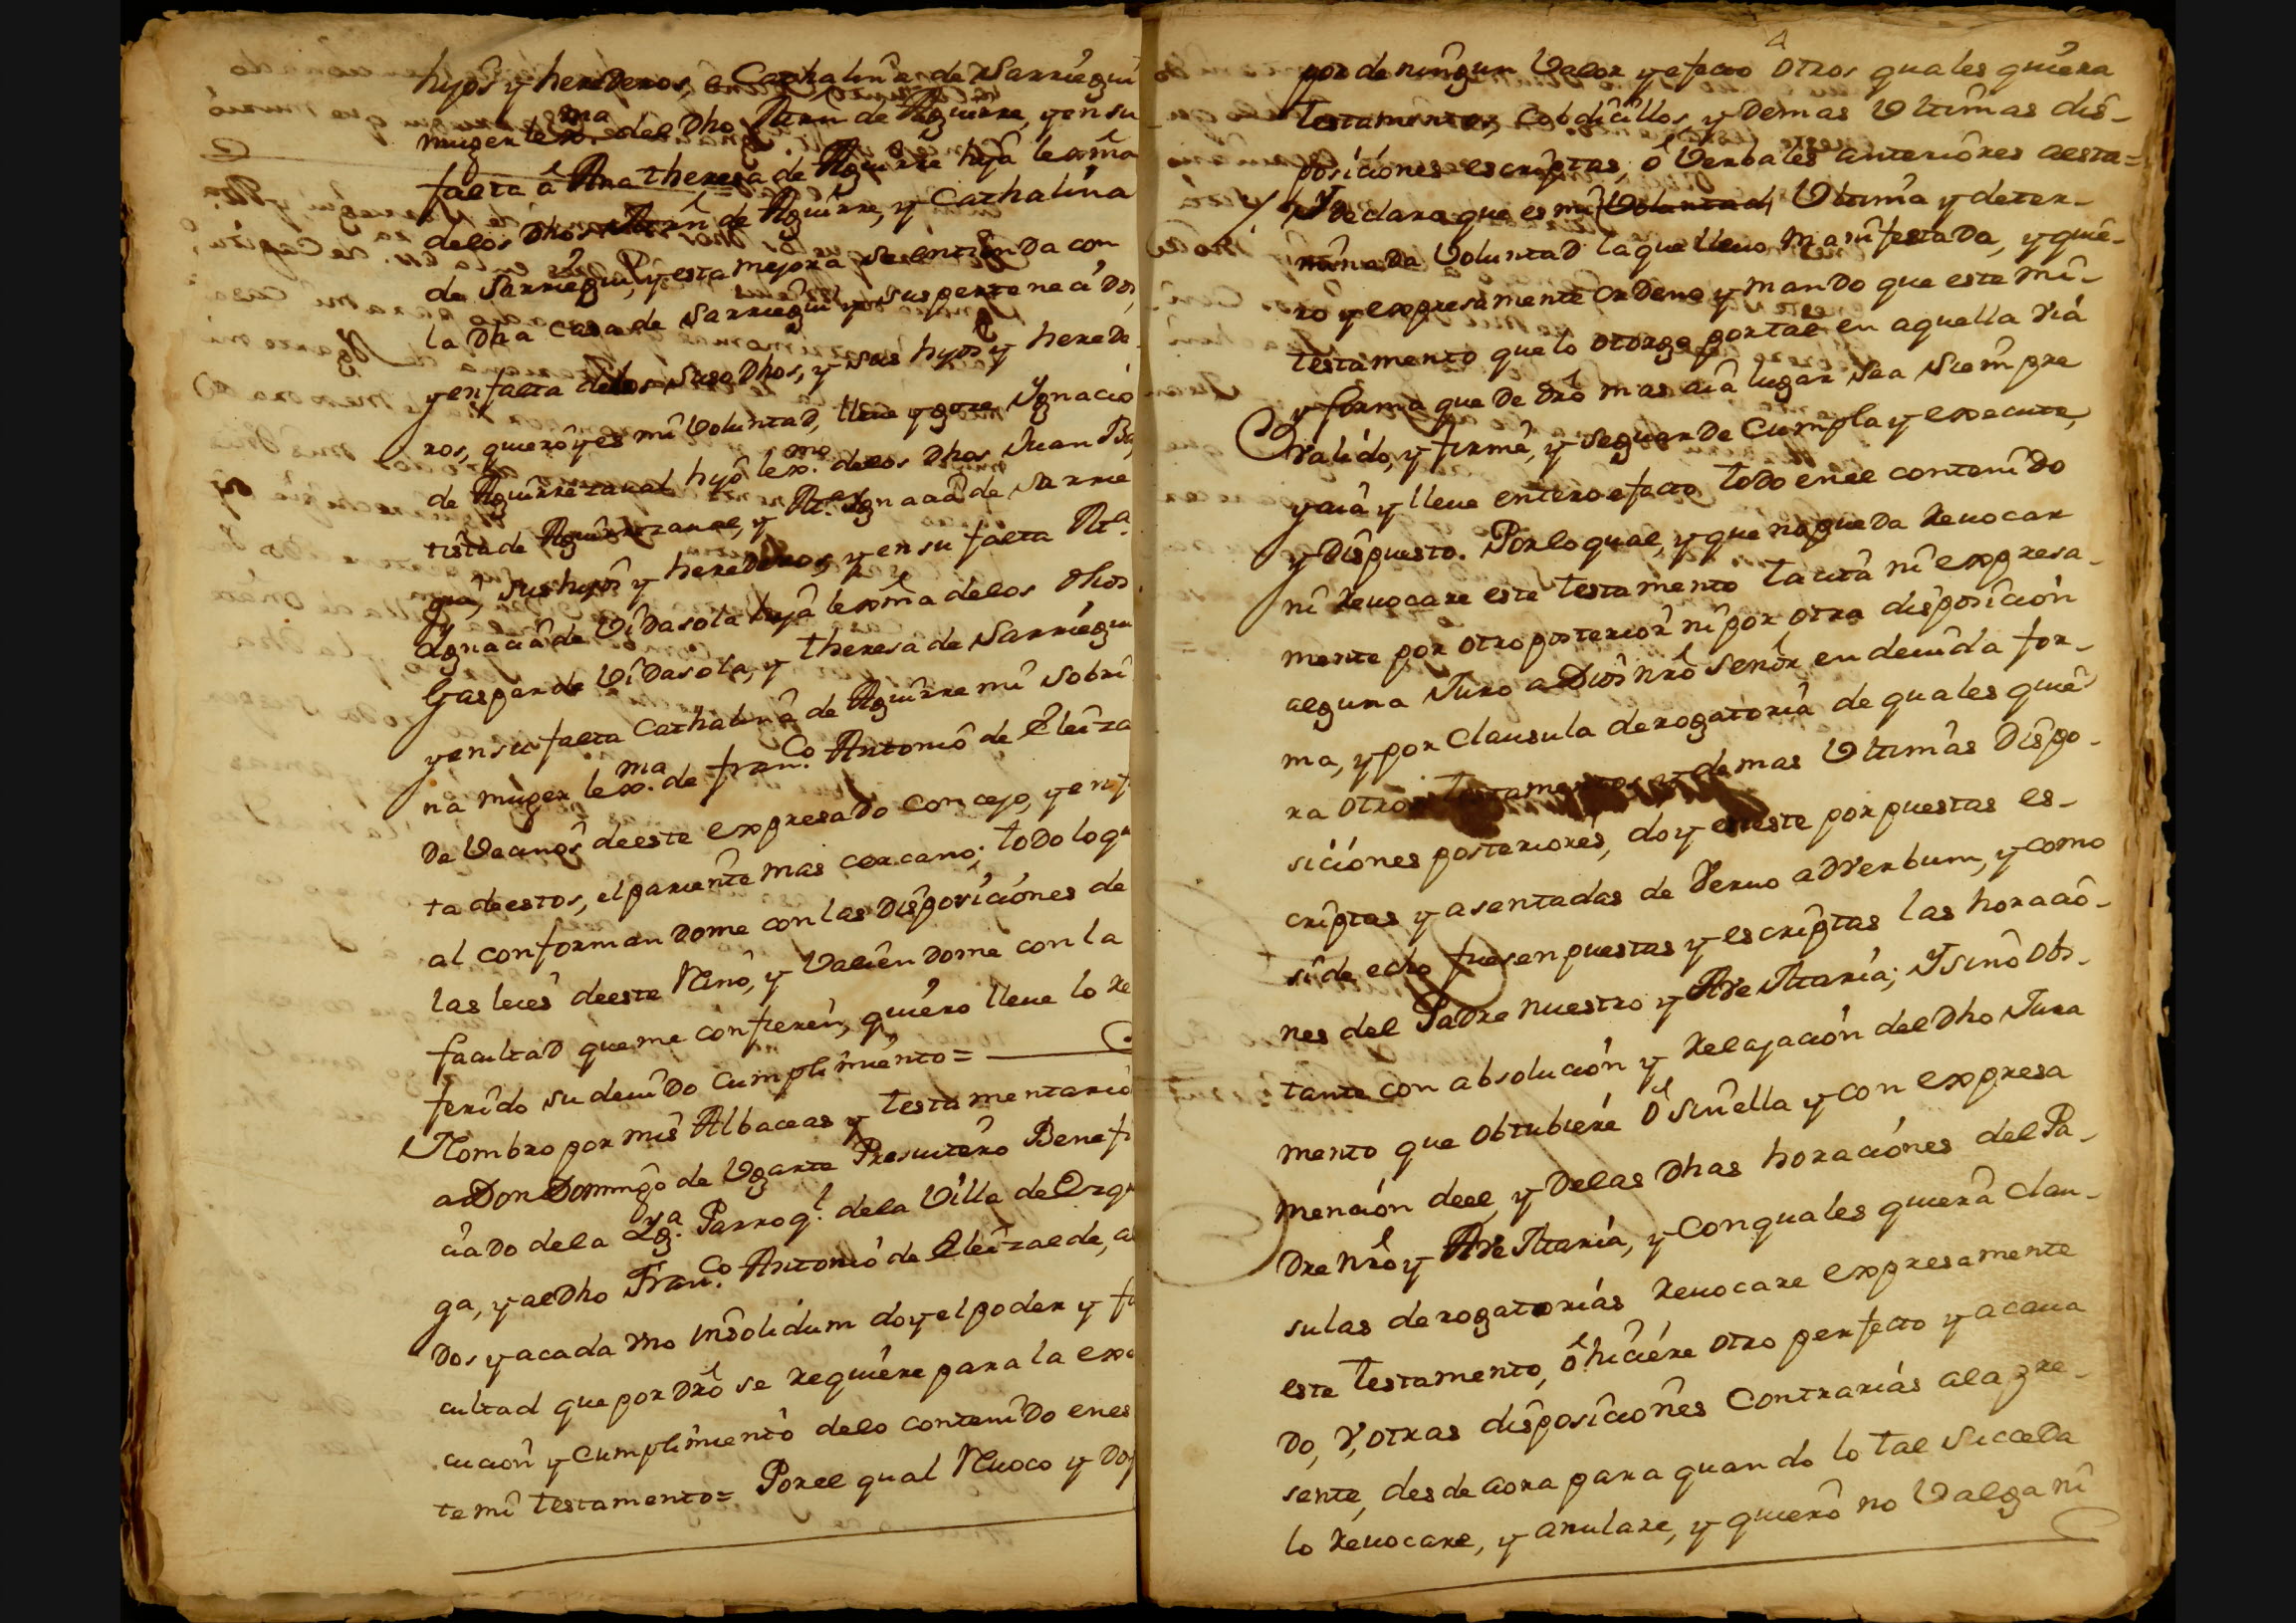 hijos y herederos, a Cathalina de Sarriegui
muger lexma. del dho Mrn de Aguirre, y en su
falta â Ana theresa de Aguirre hija lexma
delos dhos Mrn de Aguirre, y Cathalina
de Sarriegui, y esta mejora se entienda con
la dha Casa de Sarriegui y sus pertenecidos,
y en falta delos suso dhos, y sus hijos y herede-
ros, quiero y es mi Voluntad, lleve y goze Ygnacio
de Aguirrezaual hijo lexmo. delos dhos Juan Bap
tista de Aguirrezaual, y Ma. Ygnacia de Sarrie
gui, sus hijos y herederos, y en su falta Ma.
Ygnacia de Vidasola hija lexma delos dhos
Gaspar de Vidasola, y theresa de Sarriegui
y en su falta Cathalina de Aguirre mi sobri
na muger lexma. de franco. Antonio de Eleiza
de Vecinos deeste expresado concejo, y en f
ta deestos, el pariente mas cercano; todo loq
al conformandome con las Disposiciones de
las leies deeste Reino, y Valiendome con la
facultad queme confieren, quiero lleve lo re
ferido su deuido cumplimiento =
Nombro por mis Albaceas y testamentario
a Don Domingo de Vgarte Presuitero Benefi
ciado dela Yga. Parroql. dela Villa de Oxq
ga, y al dho Franco. Antonio de Eleizalde, a
dos y acada vno Insolidum doy el poder y fa
cultad que por dro se requiere para la exe
cucion y cumplimiento delo contenido enes
te mi testamento = Porel qual Reuoco y Doy
4
por de ningun Valor y efecto otros quales quiera
testamentos, Cobdicillos, y Demas Vltimas dis-
posiciones escriptas, ô Verbales anteriores aesta =
/ Y declara que es mi Voluntad, Vltima y deter-
minada Voluntad la que lleuo manifestada, y quie-
ro y expresamente ordeno y mando que este mi-
testamento que lo otorgo por tal en aquella via
y forma que de dro mas aia lugar sea siempre
Valido, y firme, y seguarde Cumpla y execute,
y aia y lleue entero efecto todo enel contenido
y dispuesto. Porlo qual, y que no pueda Reuocar
ni Reuocare este testamento tacita ni expresa-
mente por otro posterior ni por otra disposicion
alguna Juro a Dios nro Señor en deuida for-
ma, y por Clausula derogatoria de quales quie
ra otros testamentos y demas Vltimas Dispo-
siciones posteriores, doy eneste por puestas es-
criptas y asentadas de Veruo adVerbum, y como
si de echo fuesen puestas y escriptas las horacio-
nes del Padre nuestro y Ave Maria; Y sino obs-
tante con absolucion y Relajacion del dho Jura
mento que obtubiere ô sin ella y con expresa
mencion deel, y Delas dhas horaciones del Pa-
dre nro y Ave Maria, y con quales quiera clau-
sulas derogatorias Reuocare expresamente
este testamento, ô hiciere otro perfecto y acaua
do, V, otras disposiciones Contrarias ala pre-
sente, desde aora para quando lo tal succeda
lo Reuocare, y anulare, y quiero no Valga ni